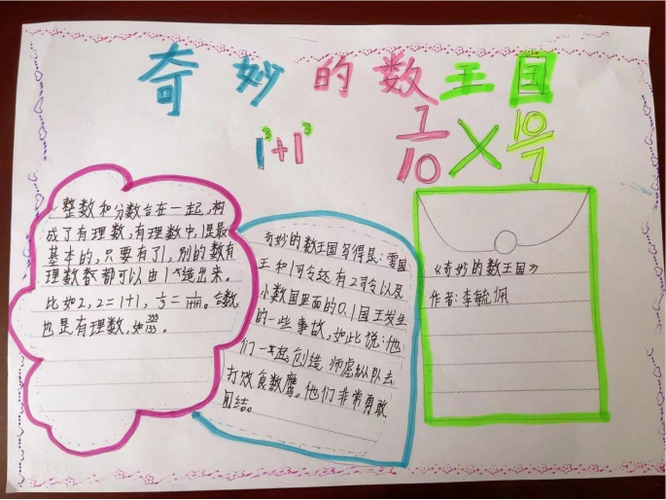 奇妙的数王国
1³+1³
7/10 × 10/7
整数和分数合在一起,构
成了有理数,有理数中,1是最
基本的,只要有了1,别的数有
理数都可以由1造出来。
比如2,2=1+1,
也是有理数,如
奇妙的数王国写得是:零国
王和1司令还有2司令以及
小数国里面的0.1国王发生
的一些事故,如此说:他
们一起创造 师虎纵队去
打败食数鹰。他们非常勇敢
团结。
《奇妙的数王国》
作者:李毓佩